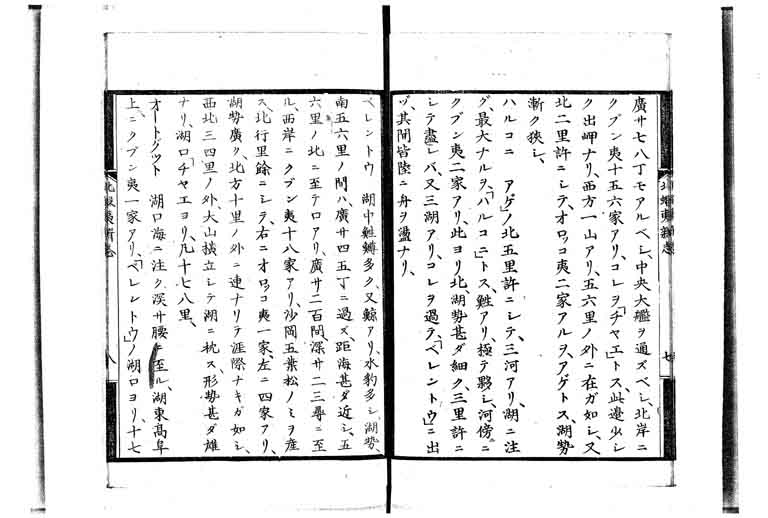 廣サ七八丁モアルベシ、中央大艦ヲ通ズベシ、北岸ニ
クブン夷十五六家アリ、コレヲ「チヤエ」トス、此邊少シ
ク出岬ナリ、西方一山アリ、五六里ノ外ニ在ガ如シ、又
北二里許ニシテ、オロッコ夷二家アルヲ、アゲトス、湖勢
漸ク狹シ、
ハルコニ　アゲノ北五里許ニシテ、三河アリ、湖ニ注
グ、最大ナルヲ、「ハルコニ」トス、鮏アリ、極テ夥シ、河傍ニ
クブン夷二家アリ、此ヨリ北、湖勢甚ダ細ク、三里許ニ
シテ盡レバ、又三湖アリ、コレヲ過テ、「ベレントウ」ニ出
ヅ、其間皆陸ニ舟ヲ盪ナリ、
七
ベレントウ　湖中鮏鱒多ク、又鯨アリ、水豹多シ、湖勢、
南五六里ノ間ハ廣サ四五丁ニ過ズ、距海甚ダ近シ、五
六里ノ北ニ至テロアリ、廣サ二百間、深サ二三尋ニ至
ル、西岸ニクブン夷十八家アリ、沙岡五葉松ノミヲ産
ス、北行里餘ニシテ、右ニオロッコ夷一家、左ニ四家アリ、
湖勢廣ク、北方十里ノ外ニ連ナリテ涯際ナキガ如シ、
西北三四里ノ外、大山横立シテ湖ニ枕ス、形勢甚ダ雄
ナリ、湖口「チヤエヨリ、凡十七八里、
オートクット　湖口海ニ注ク、深サ腰ニ至ル、湖東高阜
上ニクブン夷一家アリ、「ベレントウ」ノ湖口ヨリ、十七
北蝦夷新志
八